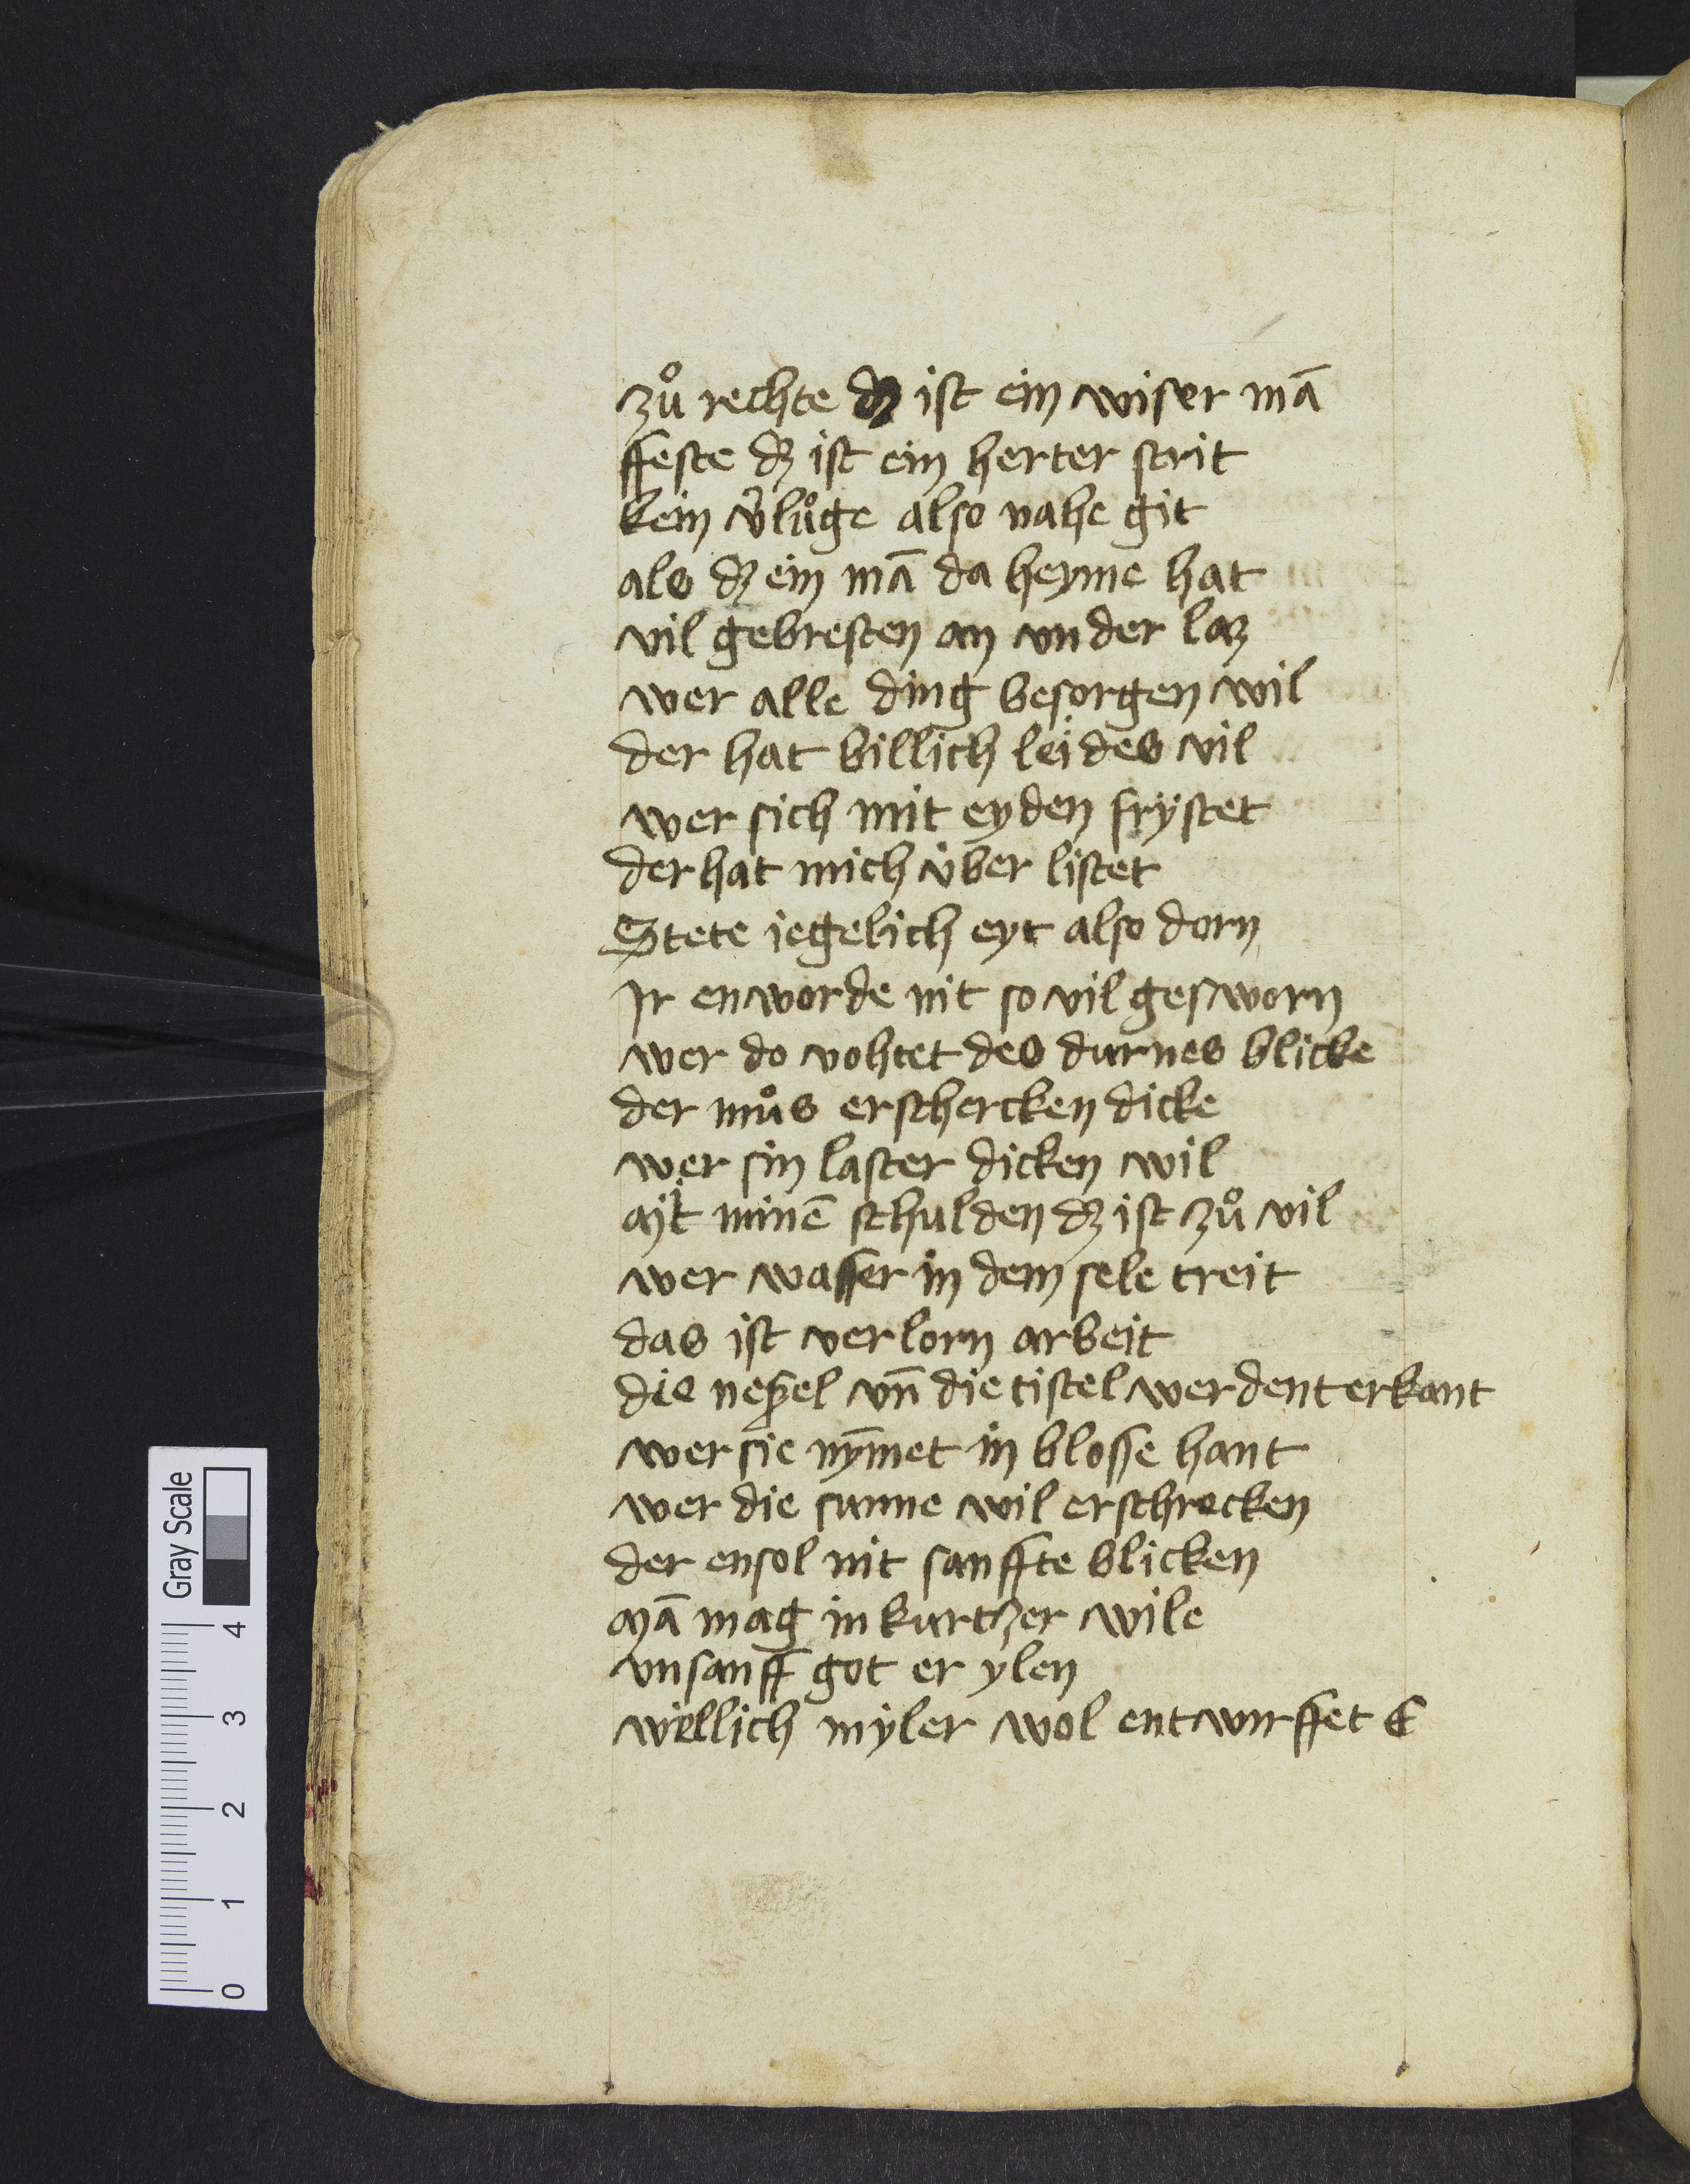 zuͦ rechte dʒ ist ein wiser mā
ffeste dʒ ist ein herter strit
kein v̓luͦge also nahe git
als dʒ ein mā da heyme hat
vil gebresten an vnder laʒ
wer alle ding besorgen wil
der hat billich leides vil
wer sich mit eyden frystet
der hat mich über listet
Stete iegelich eyt also dorn
Ir enworde nit so vil gesworn
wer do vohtet des durnes blicke
der muͦs erschercken dicke
wer sin laster dicken wil
Mit minē schulden dʒ ist zuͦ vil
wer wasser in dem sele treit
das ist verlorn arbeit
die neßel vn̄ die tistel werdent erkant
wer sie nȳmet in blosse hant
wer die sunne wil erschrecken
der ensol nit sanffte blicken
Mā mag in kurtzer wile
vnsanff got er ylen
wellich myler wol entwurffet E
Gray Scale
0 1 2 3 4